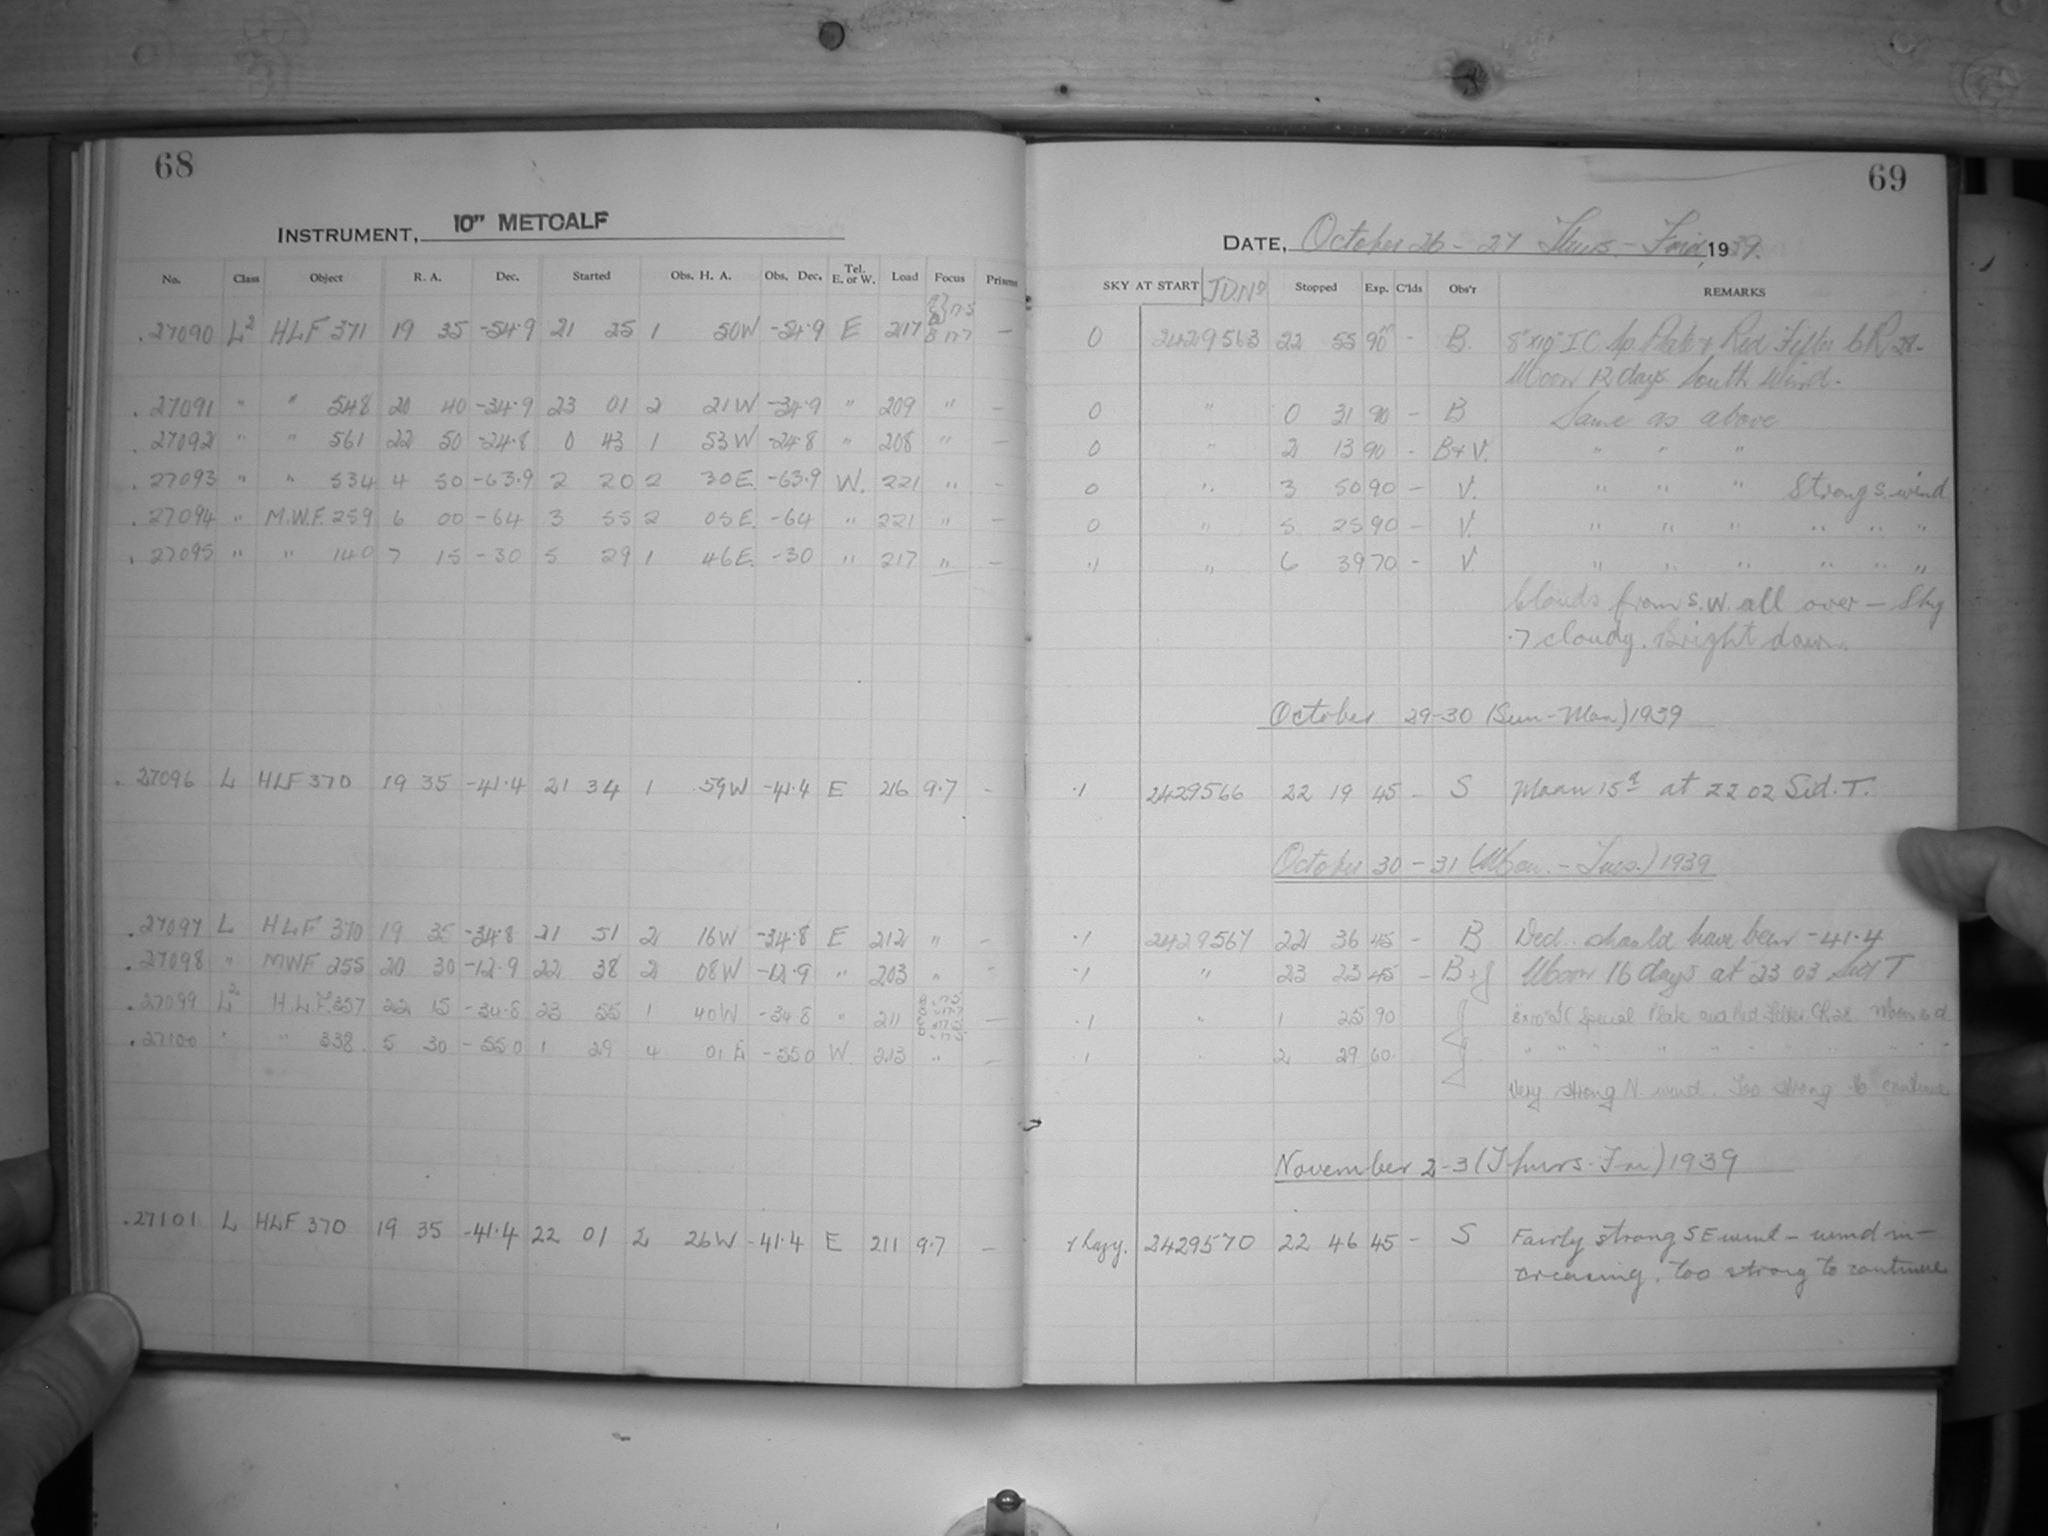 68
INSTRUMENT, 10" METCALF
No. Class Object R. A. Dec. Started Obs. H. A. Obs. Dec. Tel. E. or W. Load Focus Prisms
.27090 L2 HLF 371 19 35 -54.9 21 25 1 50W -54.9 E 217 —
.27091 " " 548 20 40 -34.9 23 01 2 21W -34.9 " 209 " —
.27092 " " 561 22 50 -24.8 0 43 1 53W -24.8 " 208 " —
.27093 " " 534 4 50 -63.9 2 20 2 30E. -63.9 W. 221 " —
.27094 " M.W.F. 259 6 00 -64 3 55 2 05E. -64 " 221 " —
.27095 " " 140 7 15 -30 5 29 1 46E. -30 " 217 " —
.27096 L HLF 370 19 35 -41.4 21 34 1 59W -41.4 E 216 9.7 —
.27097 L HLF 370 19 35 -34.8 21 51 2 16W -34.8 E 212 " —
.27098 " MWF 255 20 30 -12.9 22 38 2 08W -12.9 " 203 " —
.27099 L2 H.L.F. 357 22 15 -34.8 23 55 1 40W -34.8 " 211 —
.27100 " " 338 5 30 -55.0 1 29 4 01E -55.0 W. 213 " —
.27101 L HLF 370 19 35 -41.4 22 01 2 26W -41.4 E 211 9.7 —
69
DATE, October 26 - 27 Thurs. - Frid, 1939.
SKY AT START J.D. No Stopped Exp. C'lds Obs'r REMARKS
0 2429563 22 55 90m - B. 8"x10" I C Sp. Plate & Red Filter CR 28.
Moon 12 days South Wind.
0 " 0 31 90 - B Same as above
0 " 2 13 90 - B+V. " " "
0 " 3 50 90 - V. " " " Strong S. wind
0 " 5 25 90 - V. " " " " " "
.1 " 6 39 70 - V. " " " " " "
Clouds from S.W. all over — Sky
.7 cloudy. Bright dawn.
October 29-30 (Sun-Mon) 1939
.1 2429566 22 19 45 - S Moon 15d at 22 02 Sid. T.
October 30 - 31 (Mon. - Tues.) 1939
.1 2429567 22 36 45 - B Decl. should have been -41.4
.1 " 23 23 45 - B+J Moon 16 days at 23 03 Sid T
.1 " 1 25 90 J 8x10" IC Special Plate and Red Filter CR 28. Moon 16 d
.1 " 2 29 60 J " " " " " " " "
Very strong N. wind. Too strong to continue
November 2-3 (Thurs-Fri) 1939
hazy. 2429570 22 46 45 - S Fairly strong SE wind - wind in-
creasing, too strong to continue